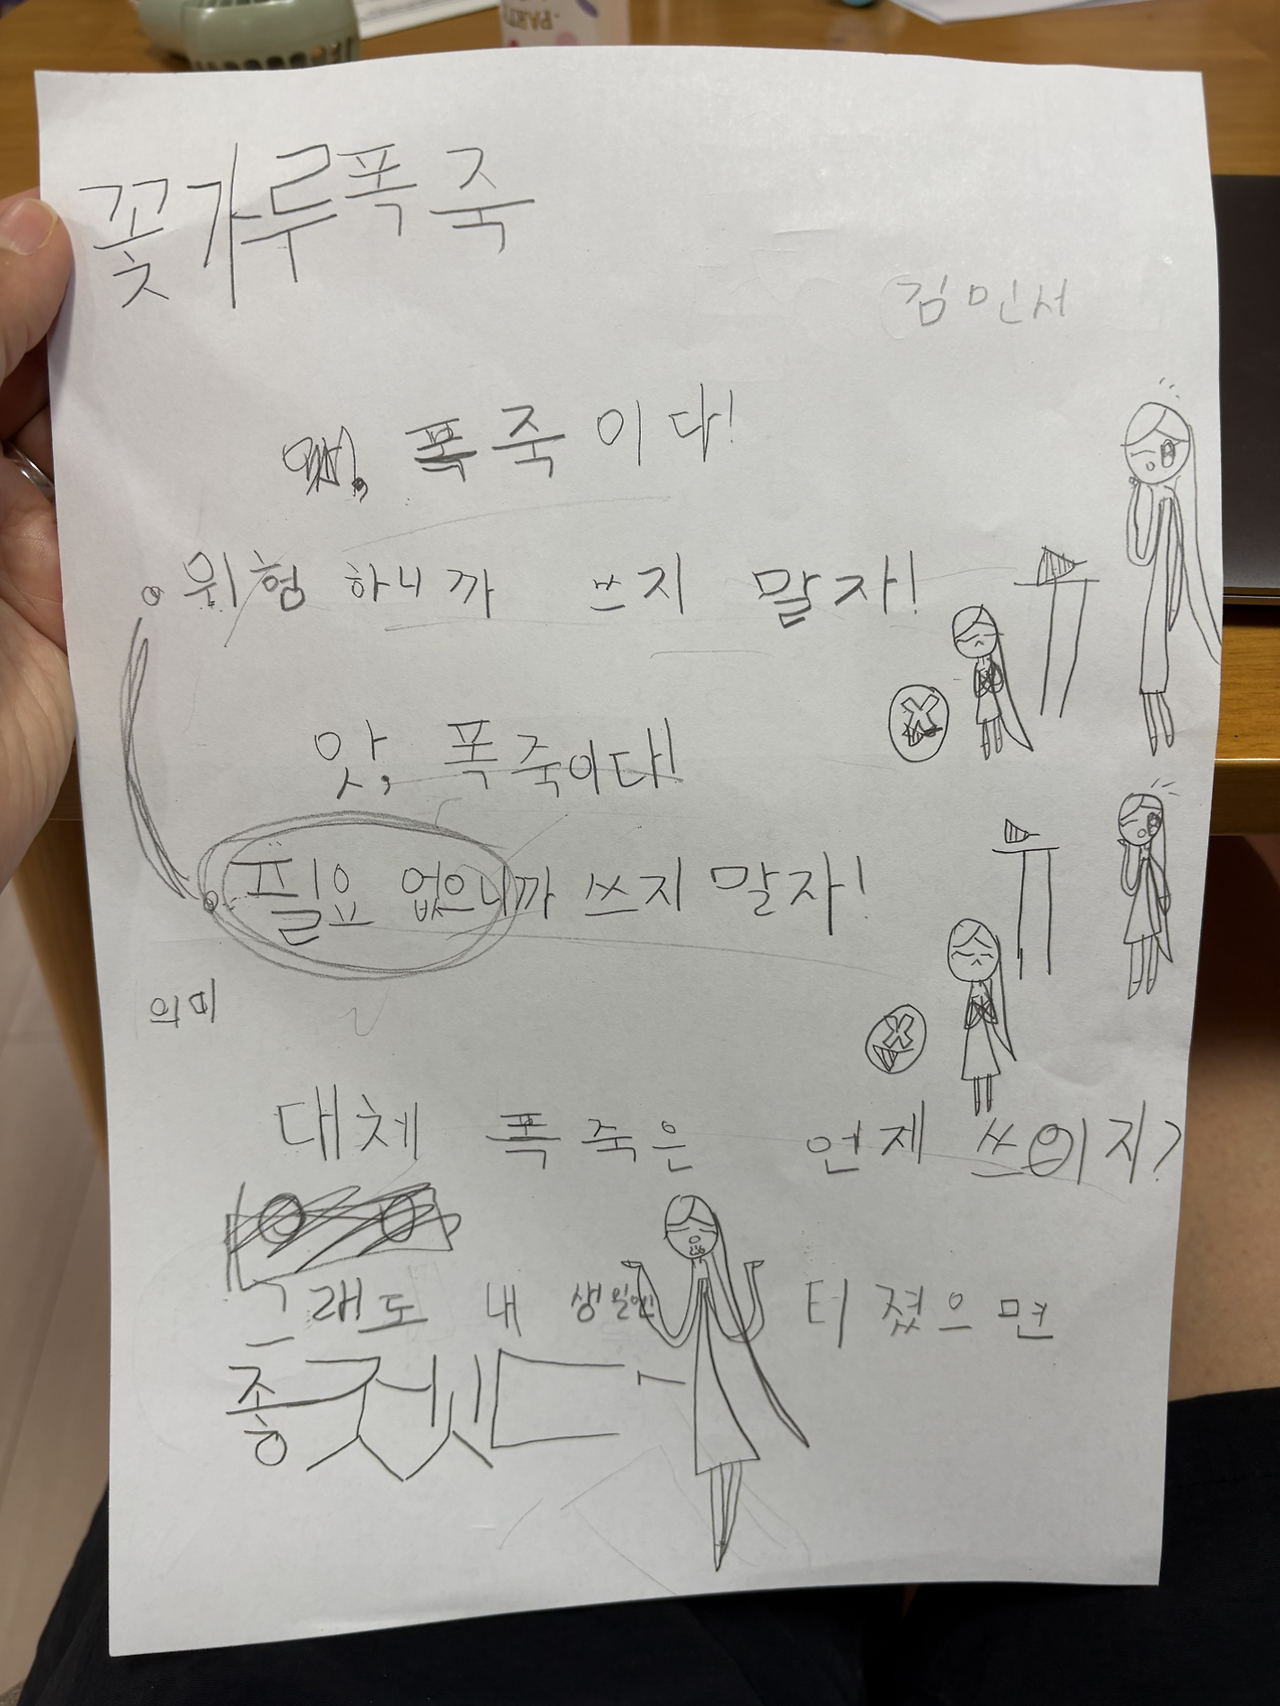 꽃가루폭죽
김민서
앗, 폭죽이다!
위험하니까 쓰지 말자!
앗, 폭죽이다!
필요 없으니까 쓰지 말자!
의미
대체 폭죽은 언제 쓰이지?
그래도 내 생일엔 터졌으면
좋겠
PARTY